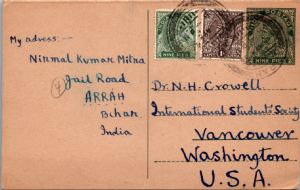 My adress:-
Nirmal Kumar Mitra
Jail Road
ARRAH
Bihar
India
Dr. N. H. Crowell
International Students' Society
Vancouver
Washington
U. S. A.
NINE PIES
NINE PIES